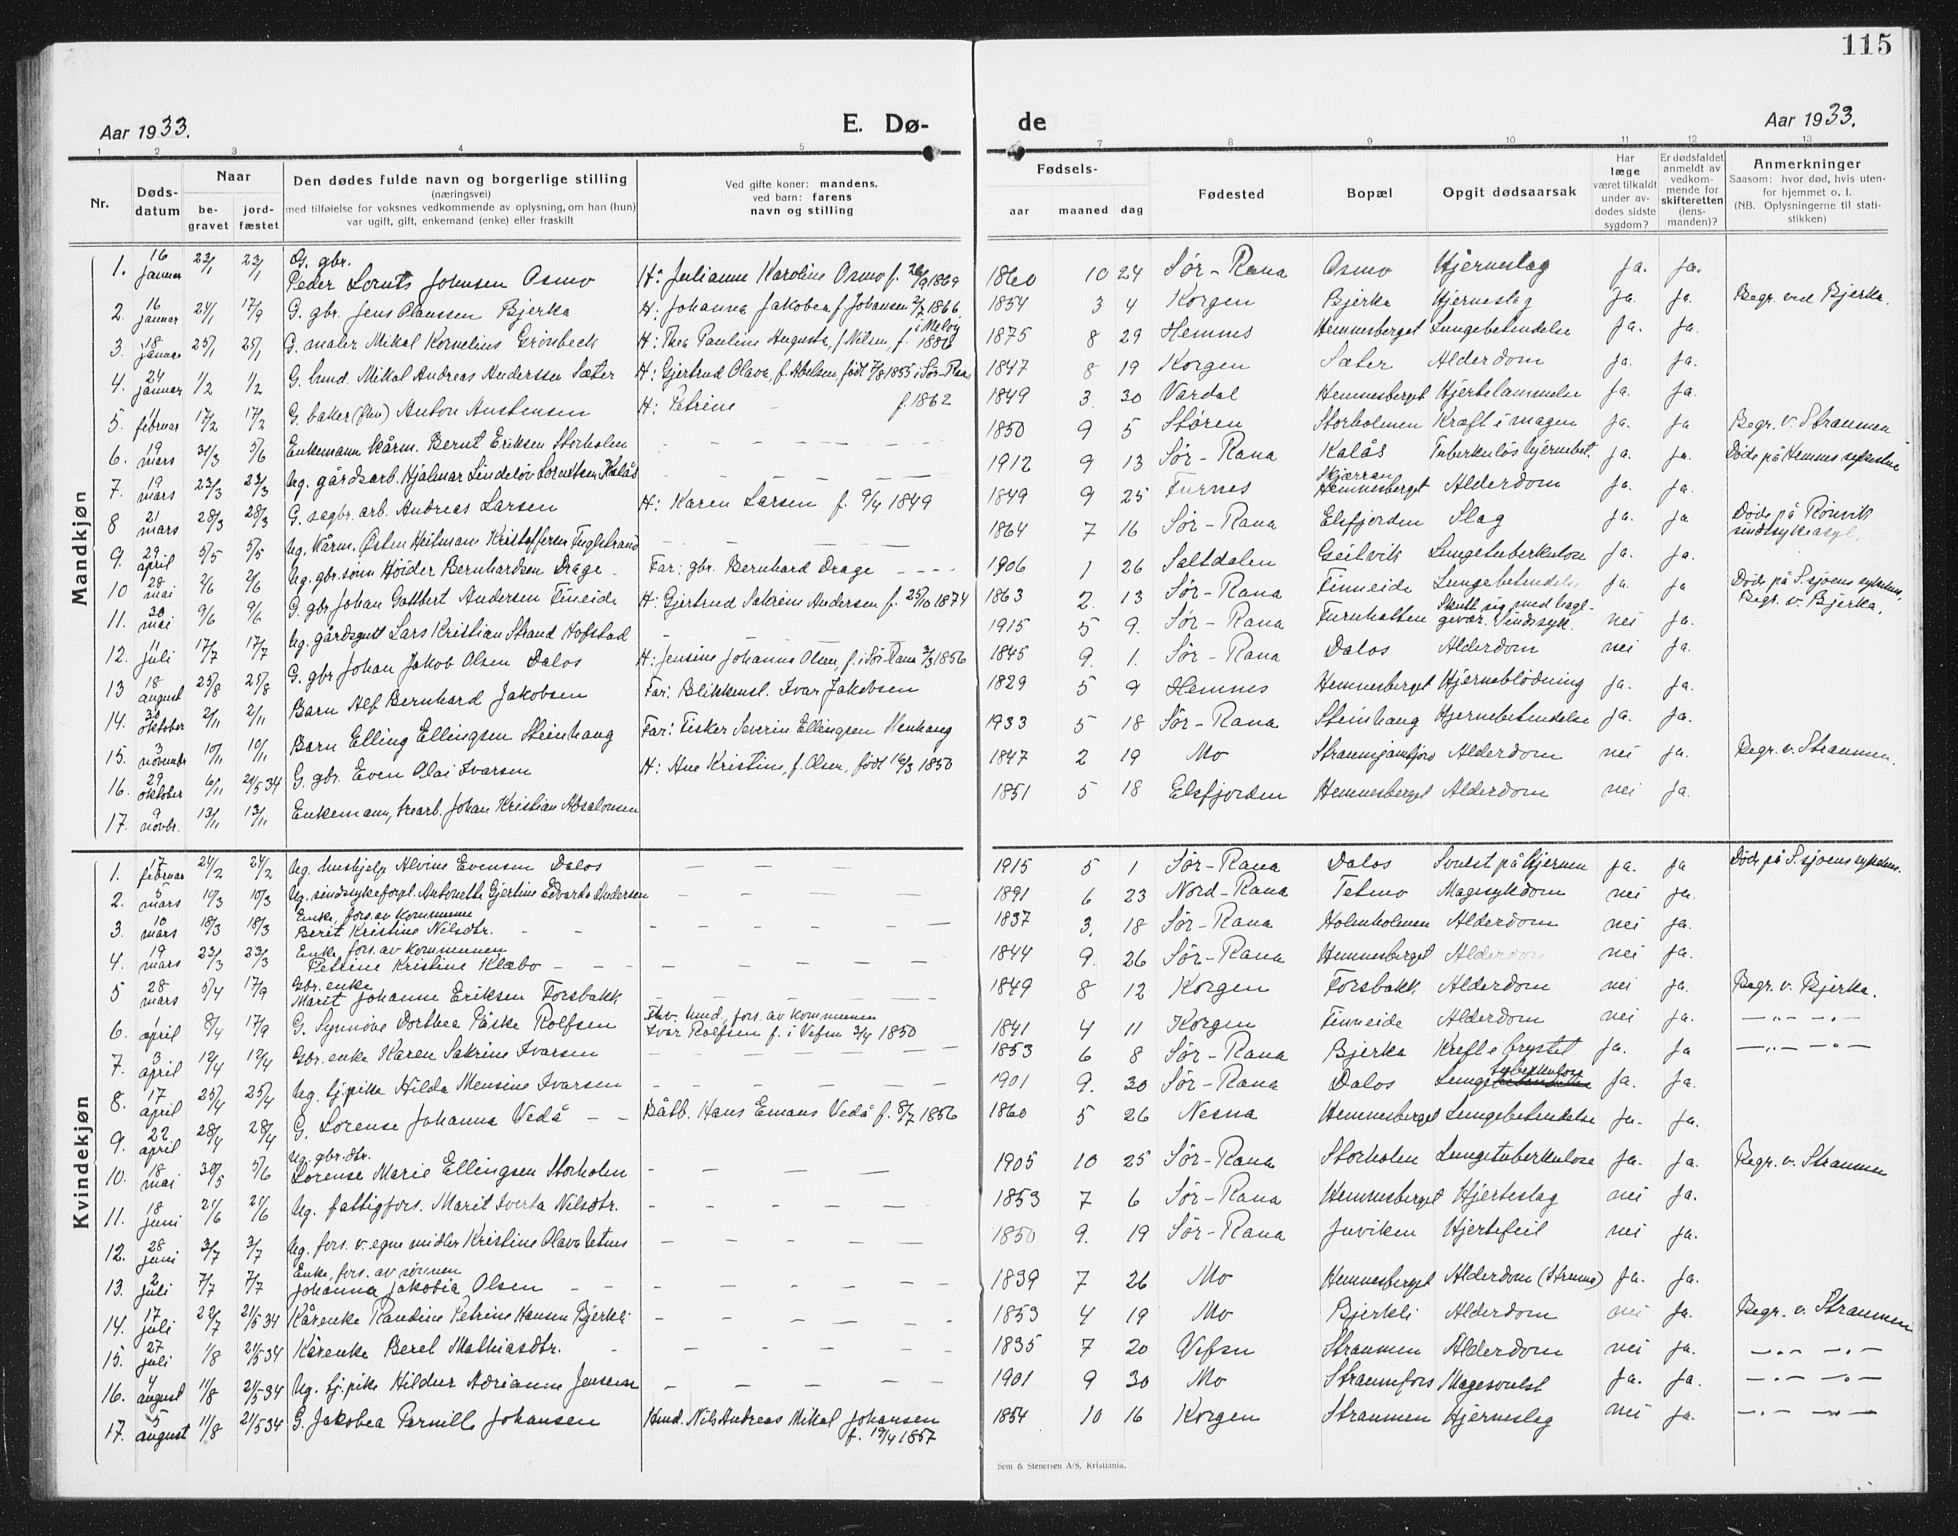 115
Aar 1933.
E. Dø-
de
Aar 1933.
1 2 3 4 5
7 8 9 10 11 12 13
Nr.
Døds-
datum
Naar
be-
gravet
jord-
fæstet
Den dødes fulde navn og borgerlige stilling
(næringsvei)
med tilføielse for voksnes vedkommende av oplysning, om han (hun)
var ugift, gift, enkemand (enke) eller fraskilt
Ved gifte koner: mandens.
ved barn: farens
navn og stilling
Fødsels-
aar maaned dag
Fødested
Bopæl
Opgit dødsaarsak
Har
læge
været tilkaldt
under av-
dødes sidste
sygdom?
Er dødsfaldet
anmeldt av
vedkom-
mende for
skifteretten
(lens-
manden)?
Anmerkninger
Saasom: hvor død, hvis uten-
for hjemmet o. l.
(NB. Oplysningerne til stati-
stikken)
Mandkjøn
1. 16 januar 23/1 23/1 G. gbr. Peder Johnsen Osmo H: Julianne Karoline Osmo f. 26/9 1869 1860 10 24 Sør-Rana Osmo Hjerneslag ja. ja.
2. 16 januar 24/1 17/9 G. gbr. Jens Olaussen Bjerka H: Johanna Jakobea f. Johansen 2/7 1866. 1854 3 4 Korgen Bjerka Hjerneslag ja. ja. Begr. ved Bjerka.
3. 18 januar 25/1 25/1 G. maler Mikal Kornelius Grönbech H: Thea Pauline Augusta, f. Nilsen, f. 1886 i Meløy 1875 8 29 Hemnes Hemnesberget Lungebetendelse ja. ja.
4. 24 januar 1/2 1/2 G. hmd. Mikal Andreas Anderssen Sæter H: Gjertrud Olava, f. Abelsen, født 7/8 1855 i Sør-Rana 1847 8 19 Korgen Sæter Alderdom ja. ja.
5. 11 februar 17/2 17/2 G. baker Anton Austensen H: Petrine - f. 1862 1849 3. 30 Vardal Hemnesberget Hjertelammelse ja. ja.
6. 19 mars 31/3 5/6 Enkemann kårm. Bernt Eriksen Storholen 1850 9 5 Støren Storholmen Kræft i magen ja. ja Begr. v. Straumen
7. 19 mars 23/3 23/3 Ug. gårdsarb. Hjalmar Lindeløv Kalås 1912 9 13 Sør-Rana Kalås Tuberkuløs hjernebet. ja. ja. Døde på Hemnes sykestue
8 21 mars 28/3 28/3 G. sagbr. arb. Andreas Larsen H: Karen Larsen f. 9/4 1849 1849 9 25 Furnes Hemnesberget Alderdom ja. ja.
9. 29 april 5/5 5/5 Ug. kårm. Østen Heitmann Kristoffersen Fuglstrand 1864 7 16 Sør-Rana Elsfjorden Slag ja. ja Døde på Rönvik sindssykeasyl.
10 28 mai 2/6 2/6 Ug. gbr. sønn Höider Bernhardsen Drage - Far: gbr. Bernhard Drage 1906 1 26 Saltdalen Geitvik Lungetuberkulose ja. ja.
11. 30 mai 9/6 9/6 G. gbr. Johan Gotthert Andersen Fineide H: Gjertrud Sakrine Andersen f. 25/10 1874 1863 2. 13 Sør-Rana Finneide Lungebetendelse ja. ja Døde på S.sjoens sykehus, Begr. v. Bjerka.
12. 11 juli 17/7 17/7 Ug. gårdsgutt Lars Kristian Strand Hofstad 1915 5 9. Sør-Rana Furnholten Skutt sig med haglgevær. Sindssyk. nei ja.
13 18 august 25/8 25/8 G. gbr Johan Jakob Olsen Dalos H: Jensine Johanna Olsen, f. i Sør-Rana 2/3 1856 1845 9. 1. Sør-Rana Dalos Alderdom nei ja.
14. 30 oktober 2/11 2/11 Barn Alf Bernhard Jakobsen Far: Blikkensl. Ivar Jakobsen 1829 5 9 Hemnes Hemnesberget Hjerneblødning ja. ja.
15. 3 november 10/11 10/11 Barn Elling Ellingsen Steinhaug Far: Fisker Severin Ellingsen 1933 5 18 Sør-Rana Steinhaug Hjernebetendelse ja. ja.
16. 29 oktober 6/11 21/5 34 G. gbr. Even Olai Ivarsen H: Ane Kristine, f. Olsen, født 16/3 1850 1847 2 19 Mo Alderdom nei ja. Begr. v. Straumen.
17. 9 novbr. 13/11 13/11 Enkemann, Johan Kristian Absalonsen 1851 5 18 Elsfjorden Hemnesberget Alderdom nei ja.
Kvindekjøn
1. 17 februar 24/2 24/2 Ug. hushjelp Alvine Evensen Dalos 1915 5 1 Sør-Rana Dalos Svulst på hjernen ja. ja Døde på S.sjoens sykehus.
2. 5 mars 10/3 10/3 Ug. sindssykeforpl. Antonette Gjertine Edvarda Andersen 1891 6 23 Nord-Rana Tetmo Magesykdom nei ja.
3. 10 mars 18/3 18/3 Enke, fors. av kommunen Berit Kristine Nilsdtr. 1837 3. 18 Sør-Rana Holmholmen Alderdom nei ja.
4. 19 mars 23/3 23/3 Enke fors. av kommunen Petrine Kristine Klæbo 1844 9. 26 Sør-Rana Hemnesberget Alderdom nei ja.
5 28 mars 5/4 17/9 Gbr. enke Marit Johanne Eriksen Forsbakk 1849 8 12 Korgen Forsbakk Alderdom nei ja. Begr. v. Bjerka.
6. 1 april 8/4 17/9 G. Synnøve Dorthea Påske Rolfsen Fhv. hmd., fors. av kommunen Ivar Rolfsen f. i Vefsn 3/4 1850 1841 4 11 Korgen Finneide Alderdom nei ja. —"— —"—
7. 3 april 12/4 12/4 Gbr. enke Karen Sakrine Ivarsen 1853 6 8 Sør-Rana Bjerka Kreft i brystet ja. ja —"— —"—
8. 17 april 25/4 25/4 Ug. tj.pike Hilda Mensine Ivarsen 1901 9. 30 Sør-Rana Dalos Lungetuberkulose ja. ja.
9. 22 april 28/4 28/4 G. Lorense Johanna Vedå Båtb. Hans Emans Vedå f. 8/7 1856 1860 5 26 Nesna Hemnesberget Lungebetendelse ja. ja.
10. 18 mai 30/5 5/6 Ug. gbr. dtr. Lorense Marie Ellingsen Storholen 1905 10 25 Sør-Rana Storholen Lungetuberkulose ja. ja. Begr. v. Straumen
11. 18 juni 21/6 21/6 Ug. fattigfors. Marit Iverta Nilsdtr. 1853 7 6 Sør-Rana Hemnesberget Hjerteslag nei ja.
12. 28 juni 3/7 3/7 Ug. fors. v. egne midler Kristine Olava Utnes 1850 9. 19 Sør-Rana Juviken Hjertefeil nei ja.
13. 2 juli 7/7 7/7 Enke, fors. av sönnen Johanna Jakobia Olsen 1839 7 26 Mo Hemnesberget Alderdom (Struma) ja. ja.
14. 17 juli 22/7 21/5 34 Kårenke Randine Petrine Hansen Bjerkli 1853 4 19 Mo Bjerkli Alderdom nei ja. Begr. v. Straumen
15. 27 juli 1/8 21/5 34 Kårenke Beret Mathiasdtr. 1835 7 20 Vefsn Straumen Alderdom nei ja. —"— —"—
16. 4 august 11/8 21/5 34 Ug. tj. pike Hildur Adrianne Jensen 1901 9 30 Mo Straumfors Magesvulst ja. ja. —"— —"—
17. 5 august 11/8 21/5 34 G. Jakobea Pernille Johansen Hmd. Nils Andreas Mikal Johansen f. 19/4 1857 1854 10 16 Korgen Straumen Hjerneslag nei ja. —"— —"—
Sem & Stenersen A/S, Kristiania.